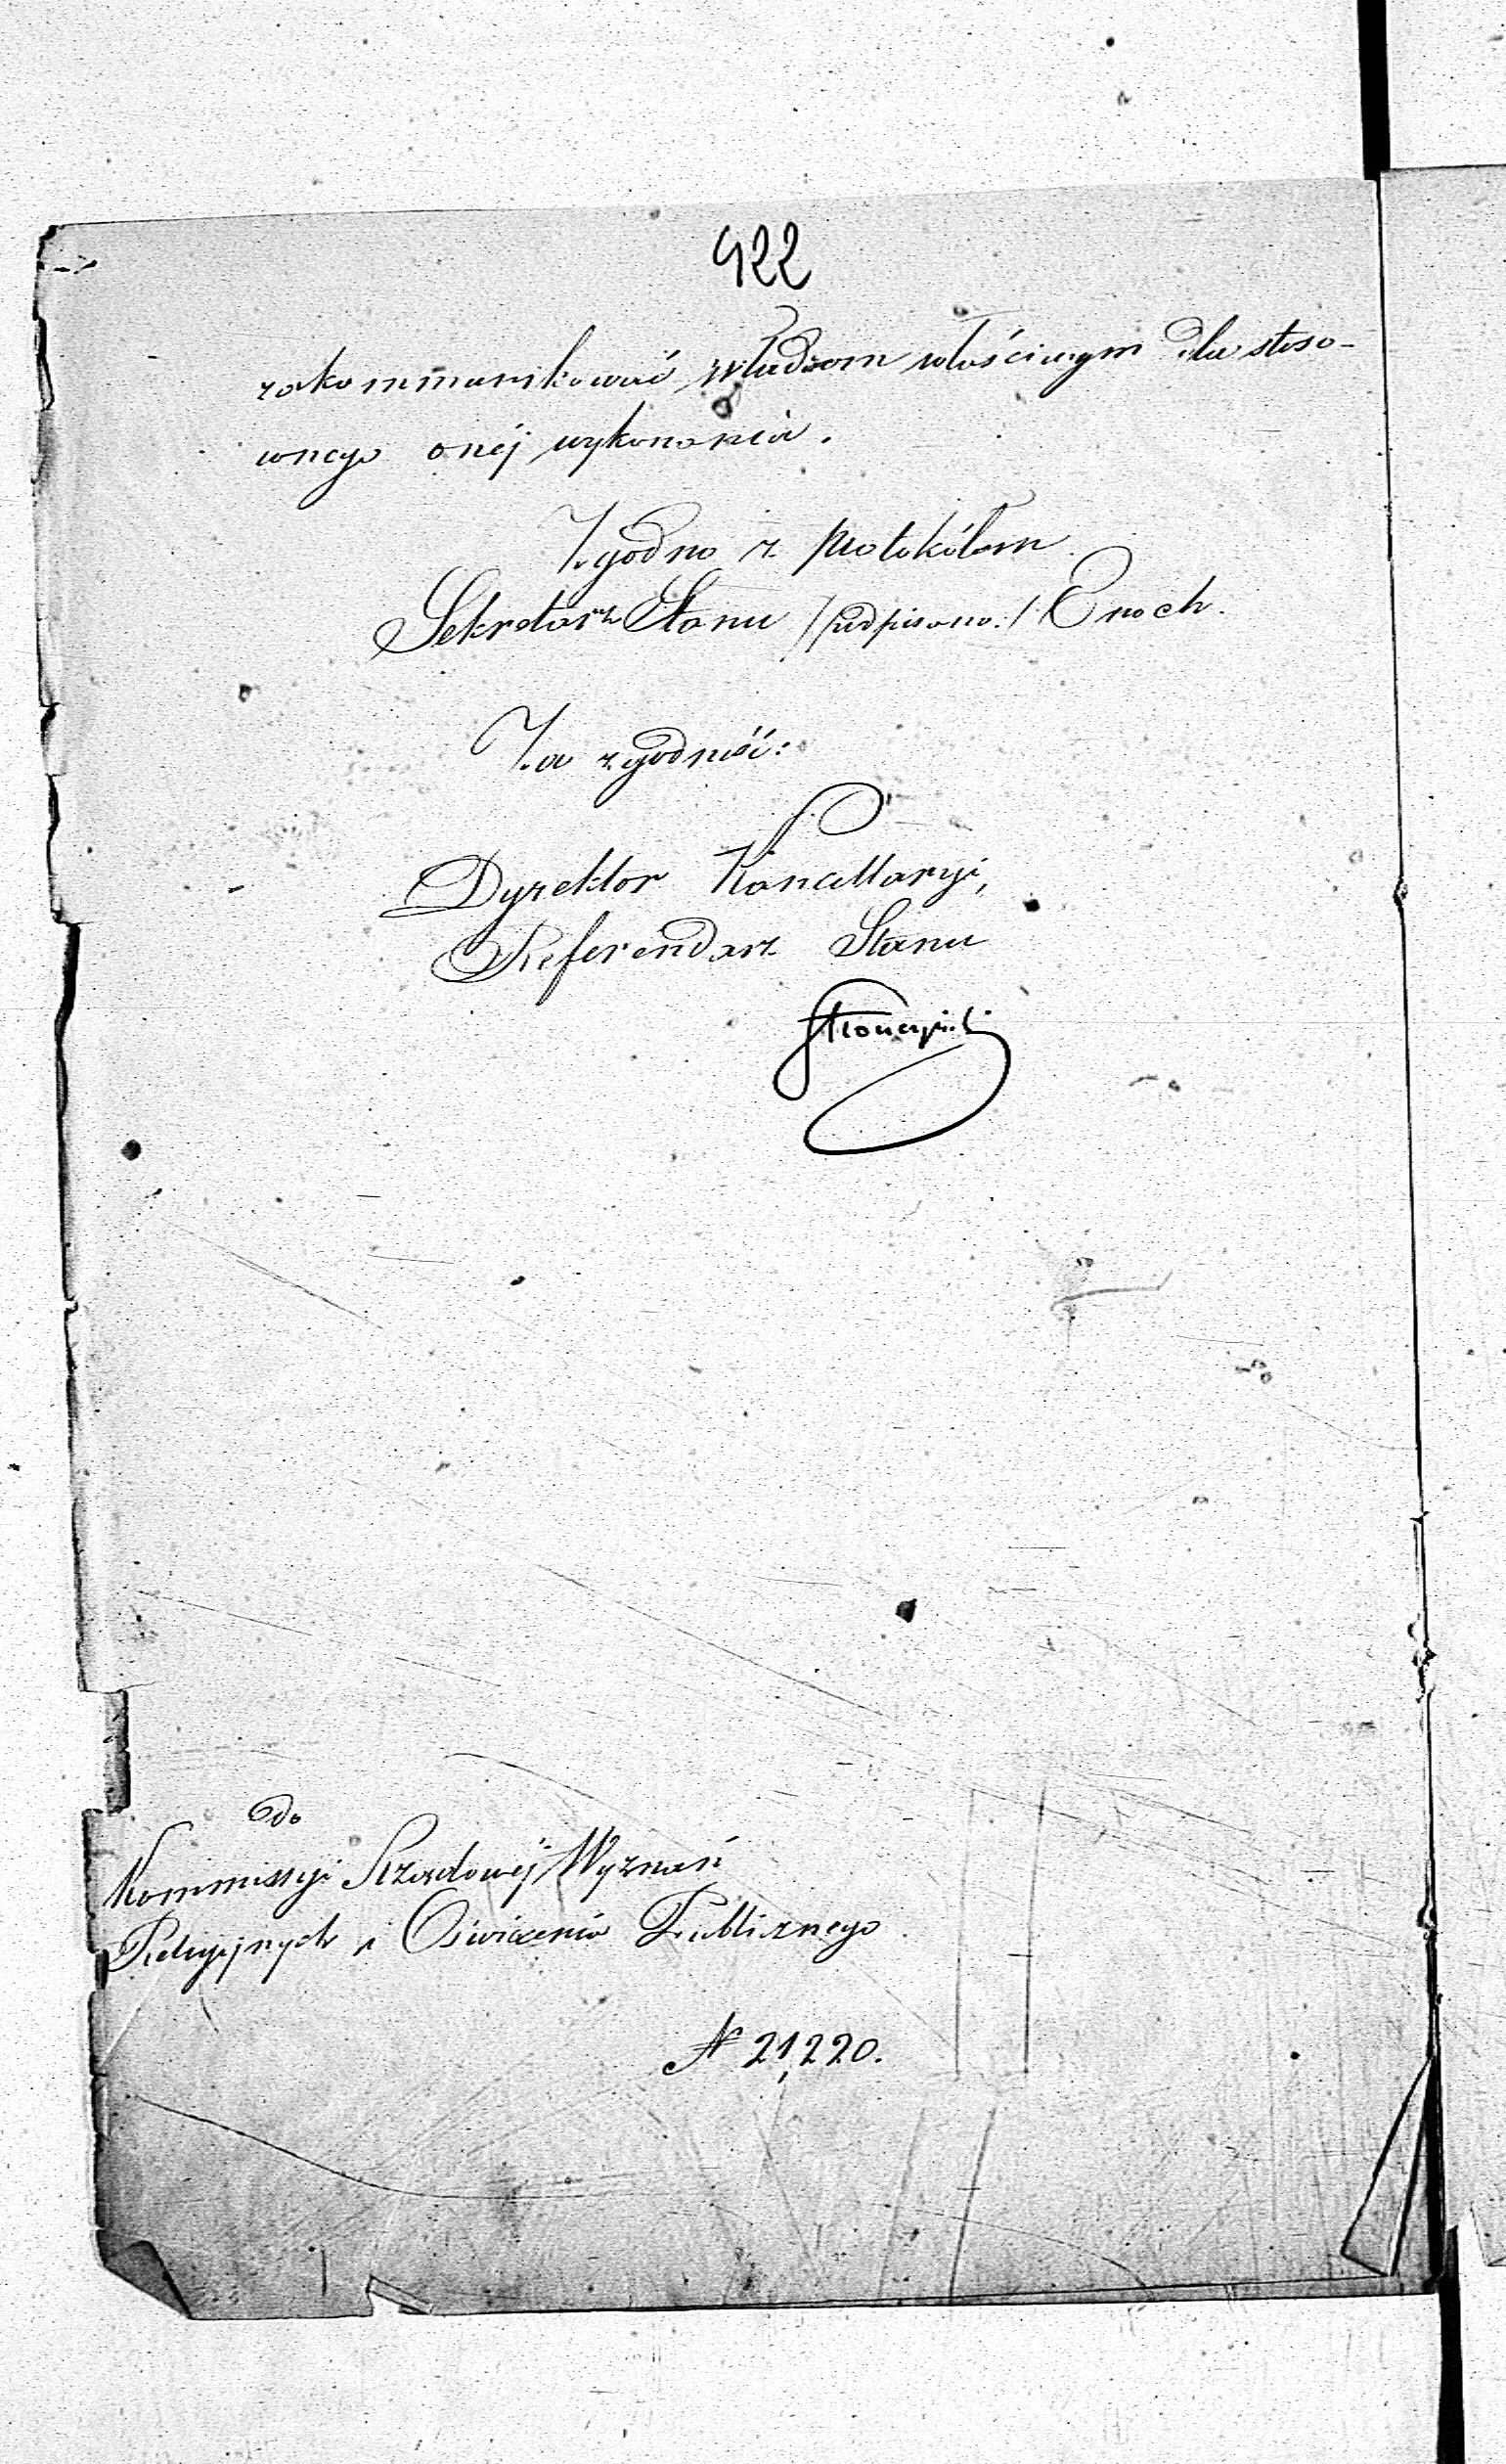 422
zakommunikować władzom właściwym dla stoso-
wnego onéj wykonania.
Zgodno z protokółem
Sekretarz Stanu /podpisano:/ Enoch.
Za zgodność:
Dyrektor Kancellaryi,
Referendarz Stanu
Stronczyński
do
Kommissyi Rządowéj Wyznań
Religijnych i Oświecenia Publicznego
N 21,220.